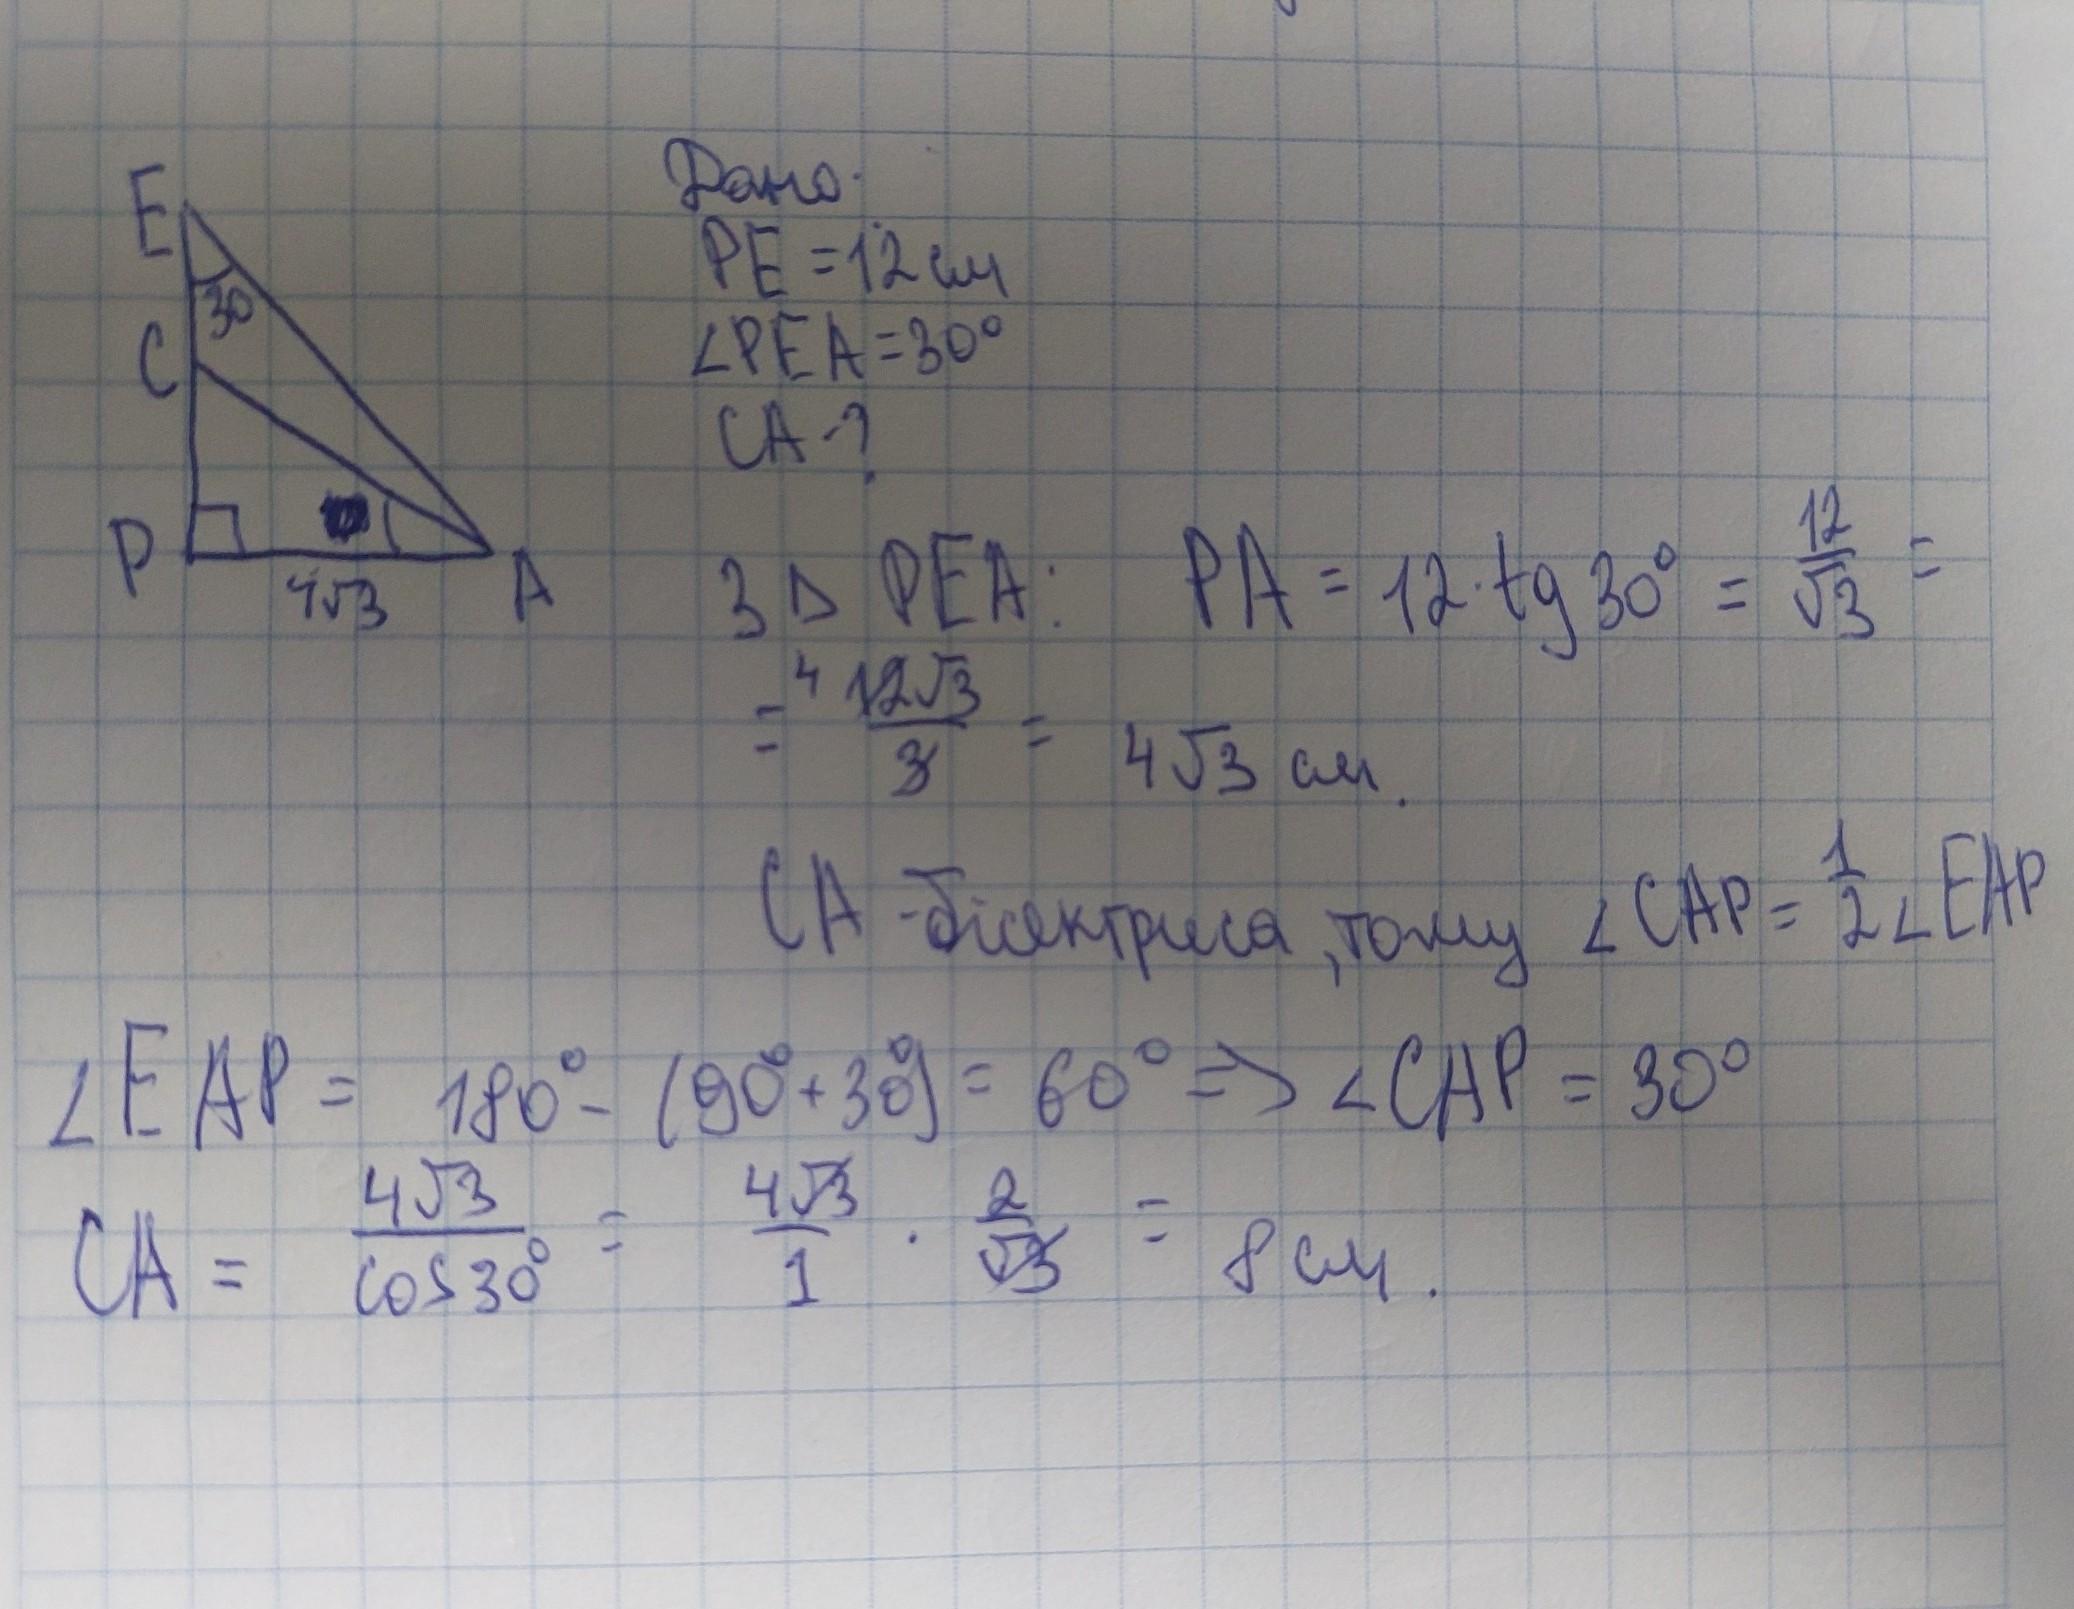 E
30
C
P
4√3
A
Дано:
PE = 12 см
∠PEA = 30°
CA - ?
З △ PEA: PA = 12 · tg 30° = 12/√3 =
= 12√3/3 4 = 4√3 см.
CA - бісектриса, тому ∠CAP = 1/2 ∠EAP
∠EAP = 180° - (90° + 30°) = 60° => ∠CAP = 30°
CA = 4√3/cos 30° = 4√3/1 · 2/√3 = 8 см.